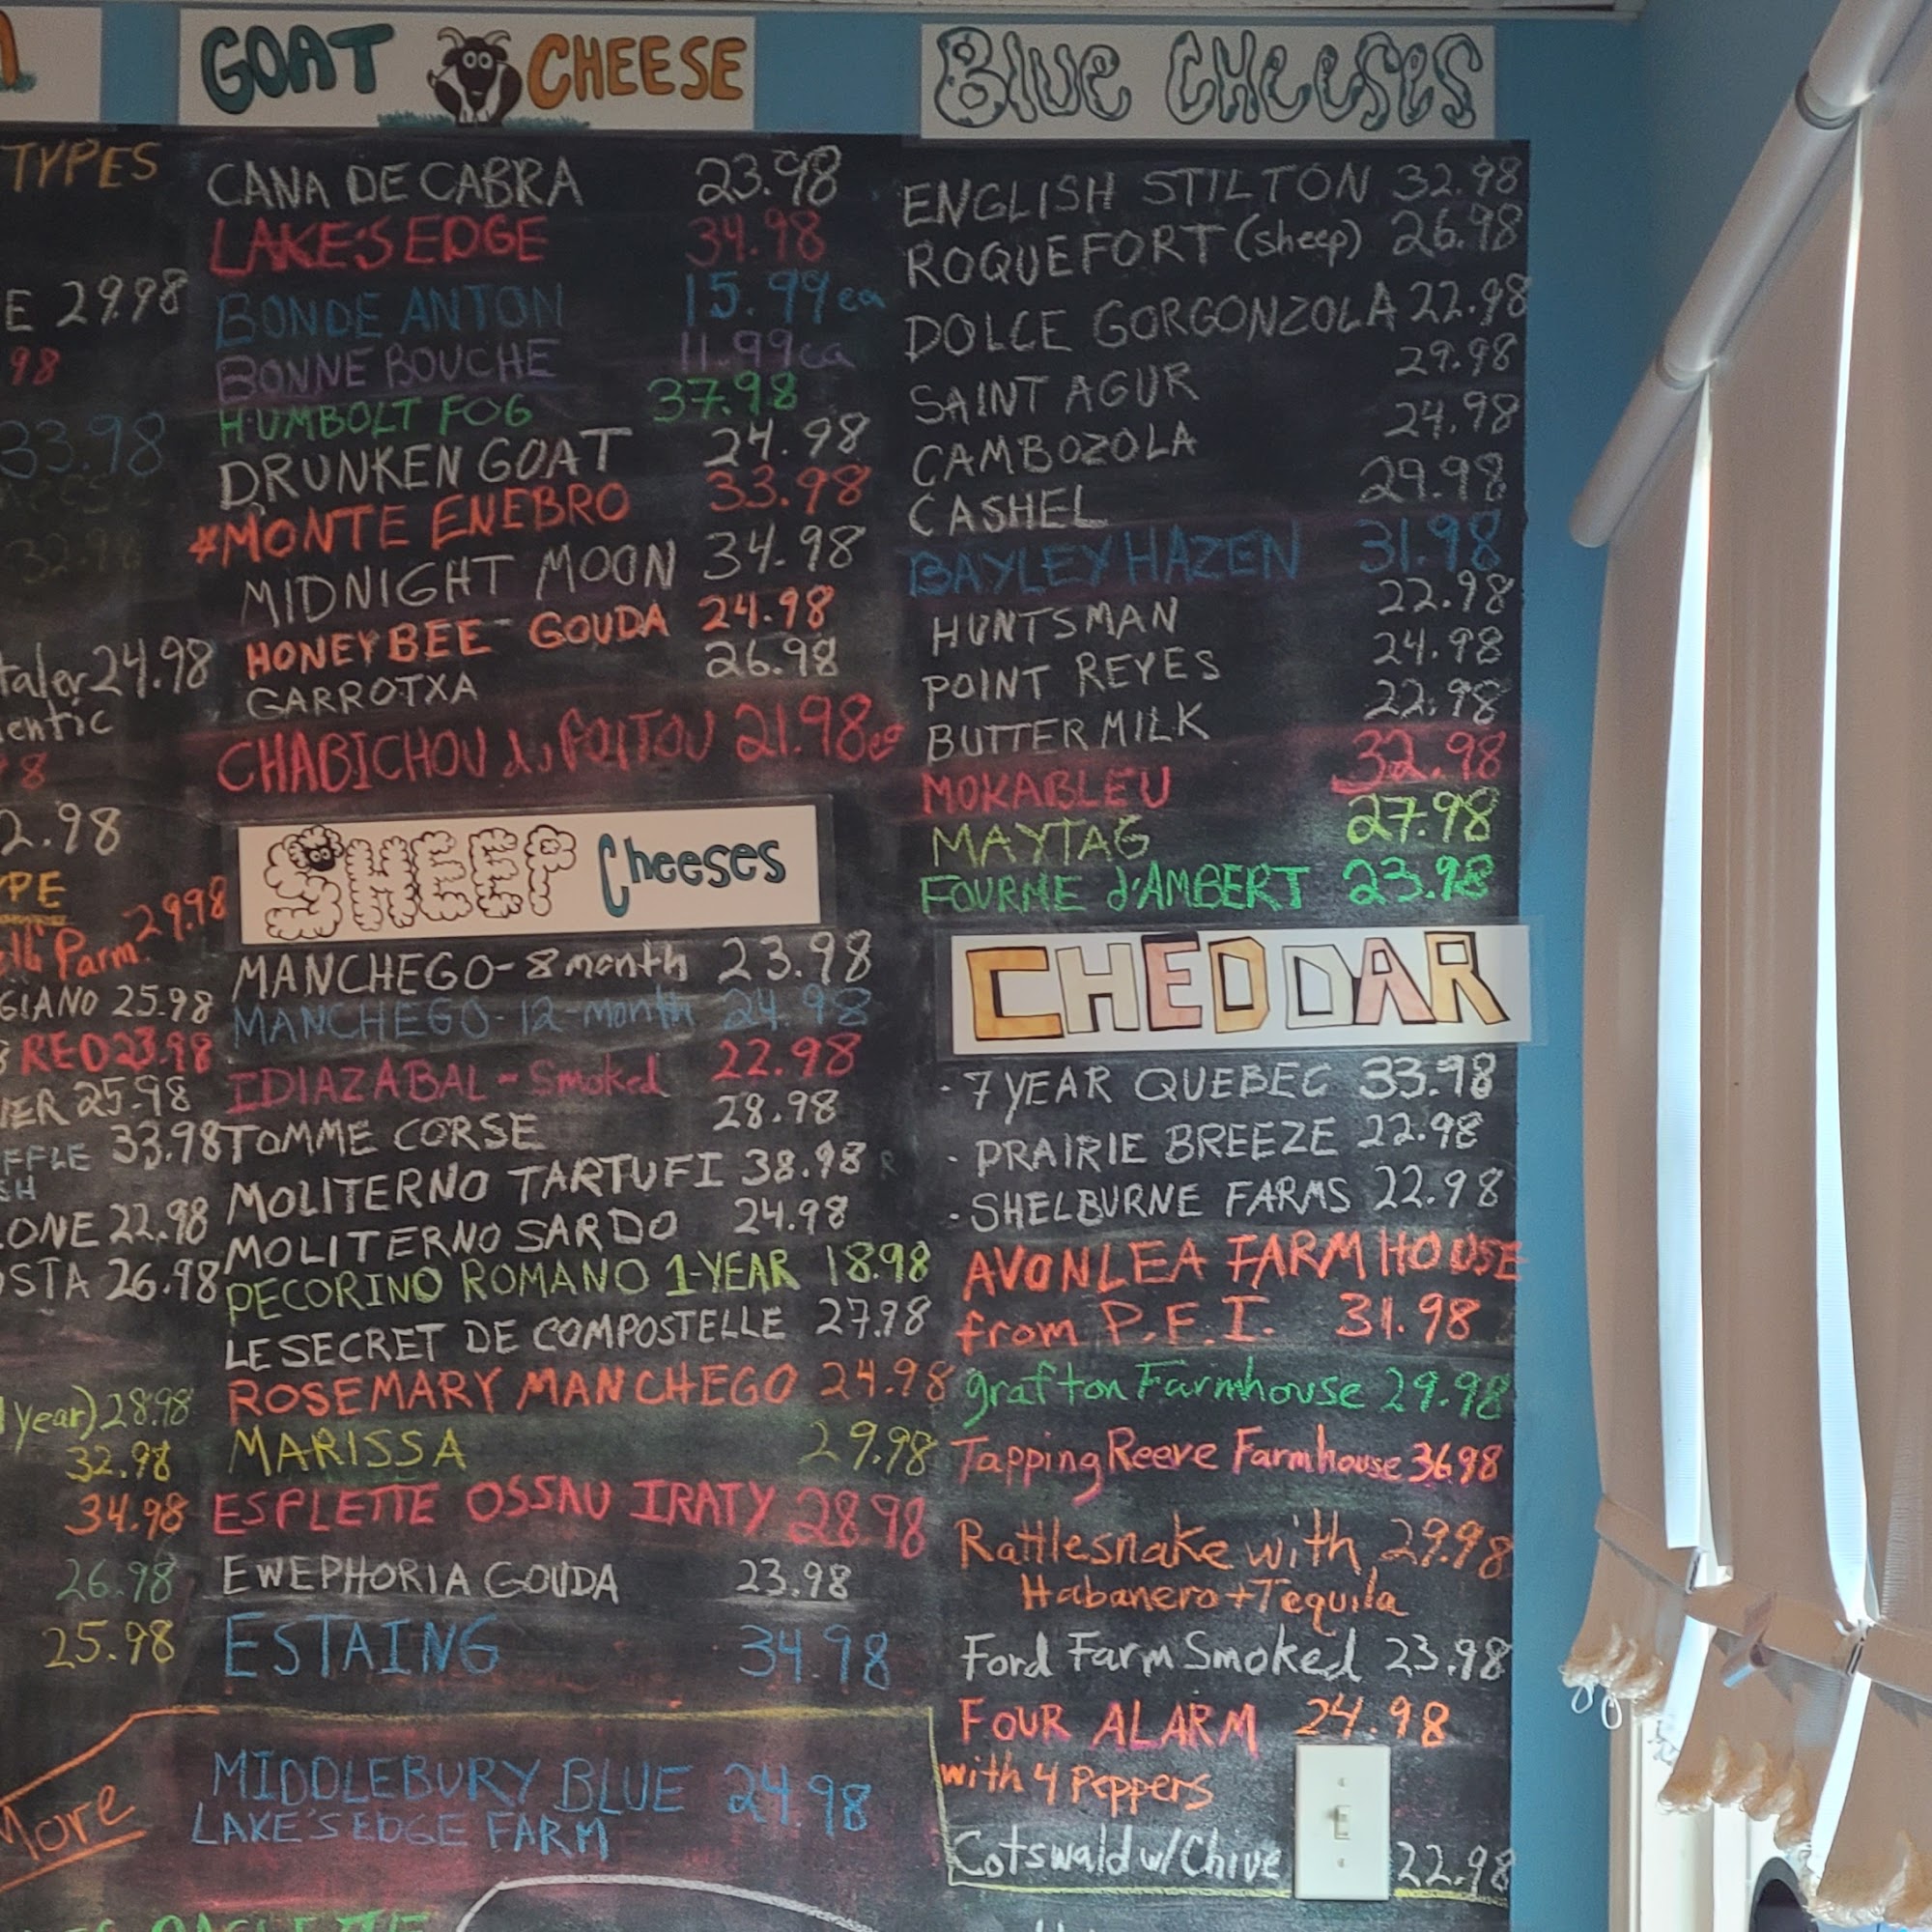 TYPES
E 29.98
98
33.98
32.98
taler 24.98
entic
8
2.98
PE
Parm. 29.98
GIANO 25.98
RED 23.98
ER 25.98
FFLE 33.98
SH
ONE 22.98
STA 26.98
year) 28.98
32.98
34.98
26.98
25.98
More
GOAT CHEESE
CANA DE CABRA 23.98
LAKE'S EDGE 34.98
BONDE ANTON 15.99 ea
BONNE BOUCHE 11.99 ea
HUMBOLT FOG 37.98
DRUNKEN GOAT 24.98
*MONTE ENEBRO 33.98
MIDNIGHT MOON 34.98
HONEYBEE - GOUDA 24.98
GARROTXA 26.98
CHABICHOU du POITOU 21.98 ea
SHEEP Cheeses
MANCHEGO - 8 month 23.98
MANCHEGO - 12-month 24.98
IDIAZABAL - Smoked 22.98
TOMME CORSE 28.98
MOLITERNO TARTUFI 38.98
MOLITERNO SARDO 24.98
PECORINO ROMANO 1-YEAR 18.98
LE SECRET DE COMPOSTELLE 27.98
ROSEMARY MANCHEGO 24.98
MARISSA 29.98
ESPLETTE OSSAU IRATY 28.98
EWEPHORIA GOUDA 23.98
ESTAING 34.98
MIDDLEBURY BLUE 24.98
LAKE'S EDGE FARM
Blue CHeeses
ENGLISH STILTON 32.98
ROQUEFORT (sheep) 26.98
DOLCE GORGONZOLA 22.98
SAINT AGUR 29.98
CAMBOZOLA 24.98
CASHEL 29.98
BAYLEY HAZEN 31.98
HUNTSMAN 22.98
POINT REYES 24.98
BUTTERMILK 22.98
MOKABLEU 32.98
MAYTAG 27.98
FOURME d'AMBERT 23.98
CHEDDAR
- 7 YEAR QUEBEC 33.98
- PRAIRIE BREEZE 22.98
- SHELBURNE FARMS 22.98
AVONLEA FARMHOUSE
from P.E.I. 31.98
grafton Farmhouse 29.98
Tapping Reeve Farmhouse 36.98
Rattlesnake with 29.98
Habanero + Tequila
Ford Farm Smoked 23.98
FOUR ALARM 24.98
with 4 Peppers
Cotswald w/ Chive 22.98